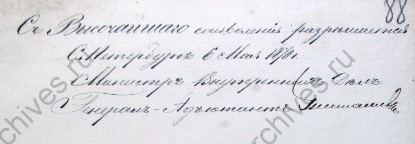 88
Съ Высочайшаго соизволенія разрѣшается
С.Петербургъ 6 Мая 1870 г.
Министръ Внутреннихъ Дѣлъ
Генералъ-Адъютантъ Тимашевъ
archives.ru
archives.ru